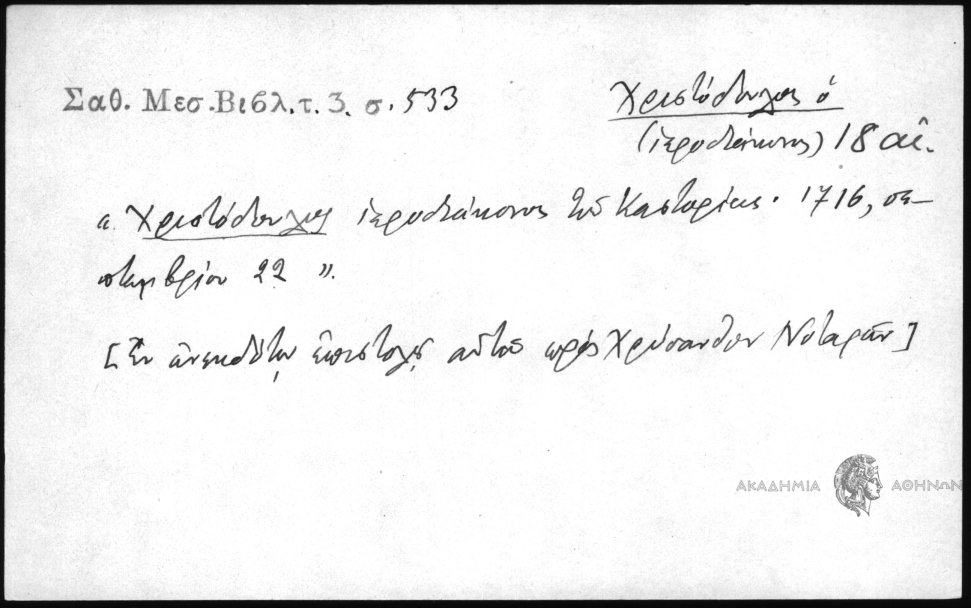 Σαθ. Μεσ. Βιβλ. τ. 3. σ. 533
Χριστόδουλος ὁ
(ἱεροδιάκονος) 18 αἰ.
α. Χριστόδουλος ἱεροδιάκονος τοῦ Καστορίας. 1716, σε-
πτεμβρίου 22 ".
[Ἐν ἀνεκδότῳ ἐπιστολῇ αὐτοῦ πρὸς Χρύσανθον Νοταρᾶν]
ΑΚΑΔΗΜΙΑ ΑΘΗΝΩΝ